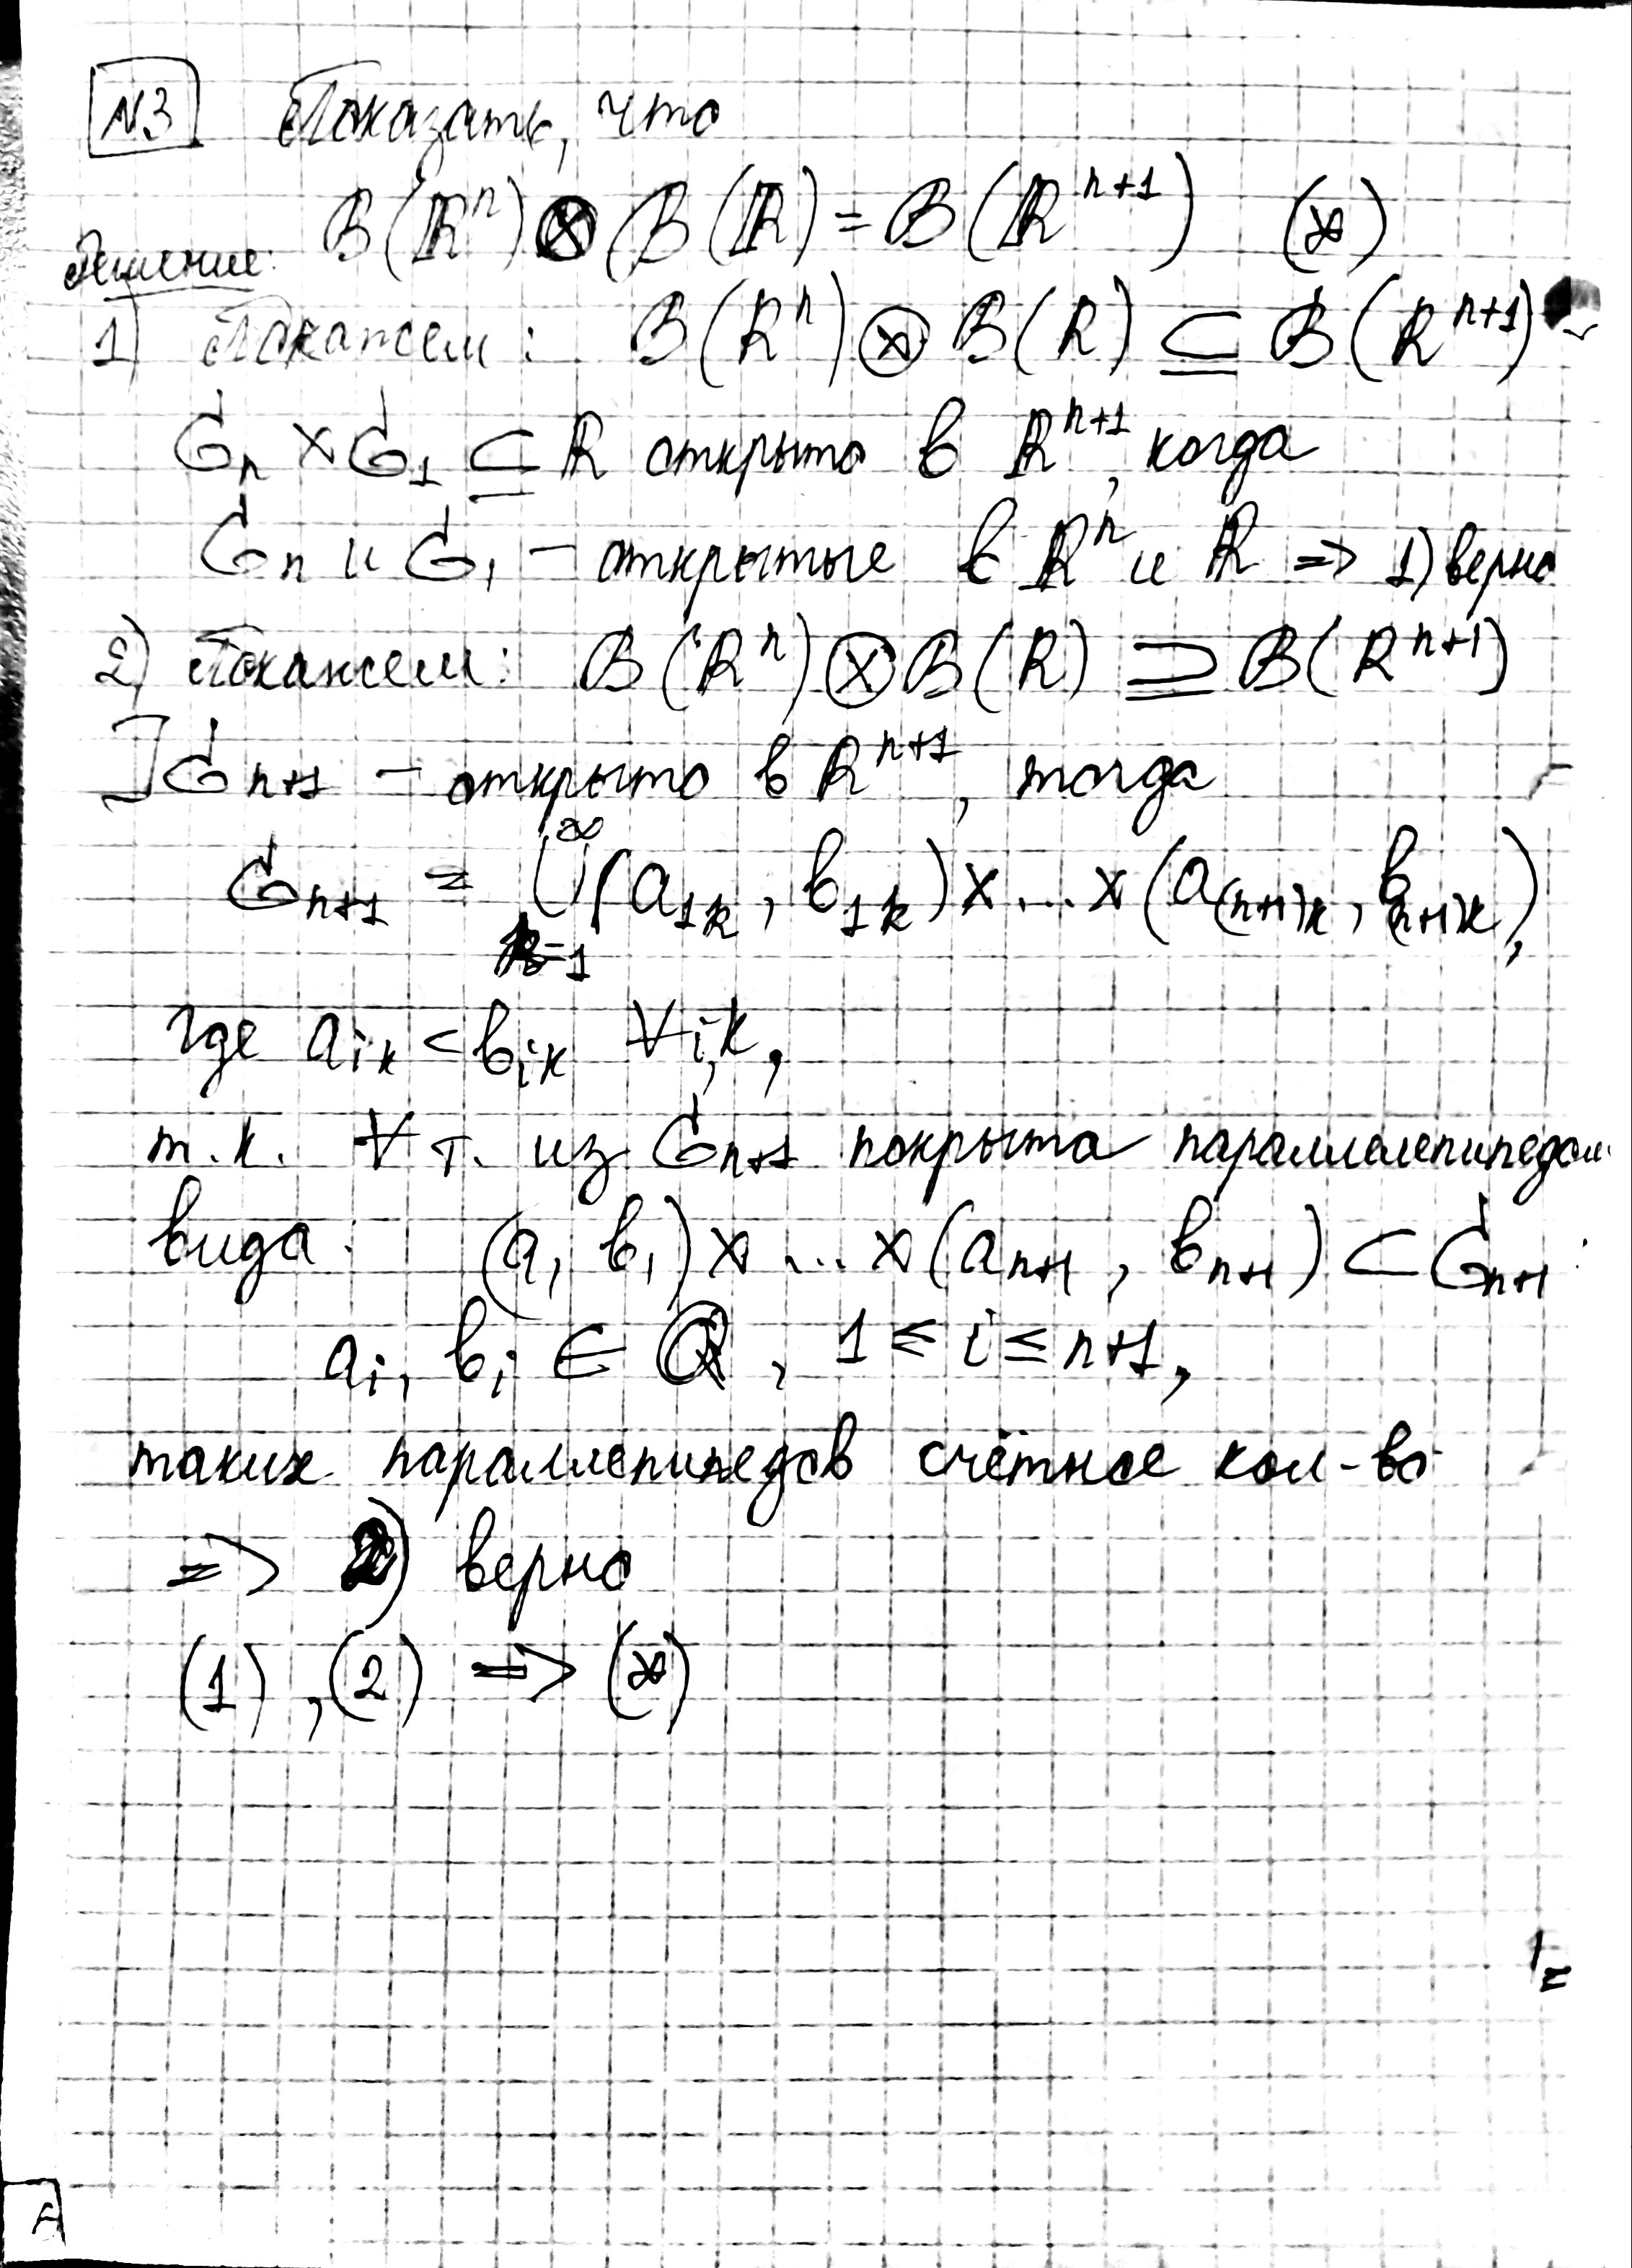 N3 Показать, что
B(ℝⁿ) ⊗ B(ℝ) = B(ℝⁿ⁺¹) (*)
Решение:
1) Покажем: B(ℝⁿ) ⊗ B(ℝ) ⊆ B(ℝⁿ⁺¹)
Gₙ × G₁ ⊆ ℝ открыто в ℝⁿ⁺¹, когда
Gₙ и G₁ – открытые в ℝⁿ и ℝ => 1) верно
2) Покажем: B(ℝⁿ) ⊗ B(ℝ) ⊇ B(ℝⁿ⁺¹)
] Gₙ₊₁ – открыто в ℝⁿ⁺¹, тогда
Gₙ₊₁ = ⋃_{k=1}^{∞} (a_{1k}, b_{1k}) × ... × (a_{(n+1)k}, b_{(n+1)k}),
где a_{ik} < b_{ik} ∀ i, k,
т.к. ∀ т. из Gₙ₊₁ покрыта параллелепипедом
вида: (a₁ b₁) × ... × (aₙ₊₁, bₙ₊₁) ⊂ Gₙ₊₁:
aᵢ, bᵢ ∈ ℚ, 1 ≤ i ≤ n+1,
таких параллепипедов счётное кол-во
=> 2) верно
(1), (2) => (*)
A